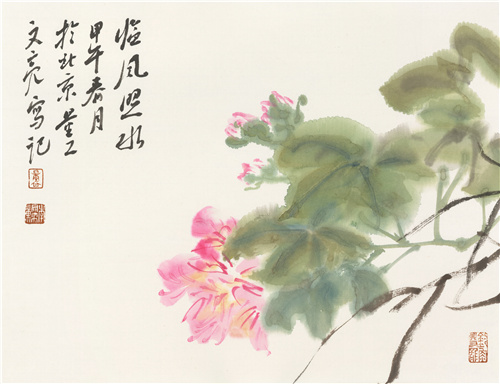 临风照水
甲午春月
於北京
文亮寫记